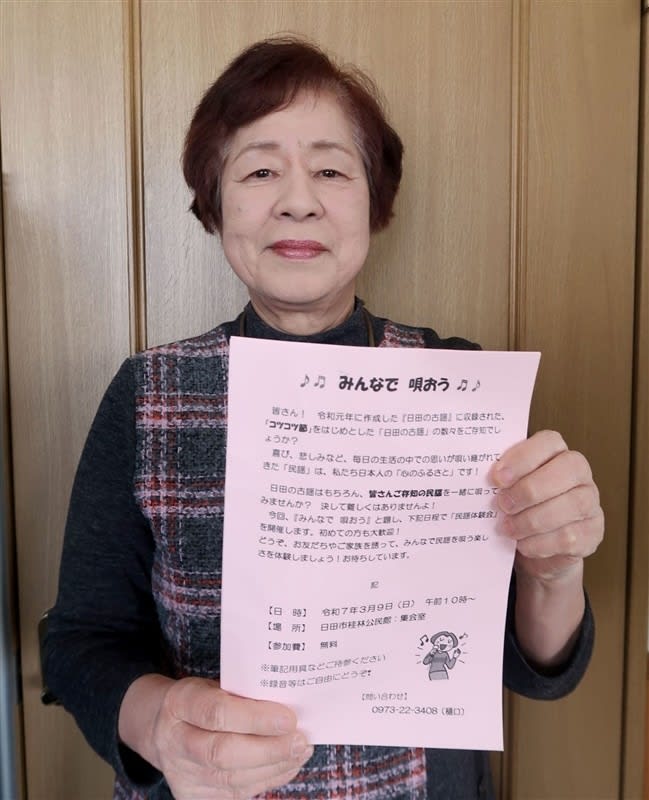 ♪♫ みんなで 唄おう ♫♪
皆さん！ 令和元年に作成した『日田の古謡』に収録された、
「コツコツ節」をはじめとした「日田の古謡」の数々をご存知でし
ょうか？
喜び、悲しみなど、毎日の生活の中での思いが唄い継がれて
きた「民謡」は、私たち日本人の「心のふるさと」です！
日田の古謡はもちろん、皆さんご存知の民謡を一緒に唄って
みませんか？ 決して難しくはありませんよ！
今回、『みんなで 唄おう』と題し、下記日程で「民謡体験会」
を開催します。初めての方も大歓迎！
どうぞ、お友だちやご家族を誘って、みんなで民謡を唄う楽し
さを体験しましょう！お待ちしています。
記
【日 時】 令和７年３月９日（日） 午前１０時～
【場 所】 日田市桂林公民館：集会室
【参加費】 無料
※筆記用具などご持参ください
※録音等はご自由にどうぞ
【問い合わせ】
0973-22-3408（樋口）